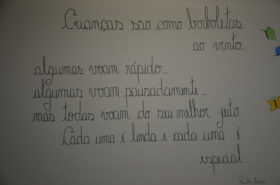 Crianças são como borboletas
ao vento.
algumas voam rápido...
algumas voam pausadamente...
mas todas voam do seu melhor jeito
Cada uma é linda e cada uma é
especial